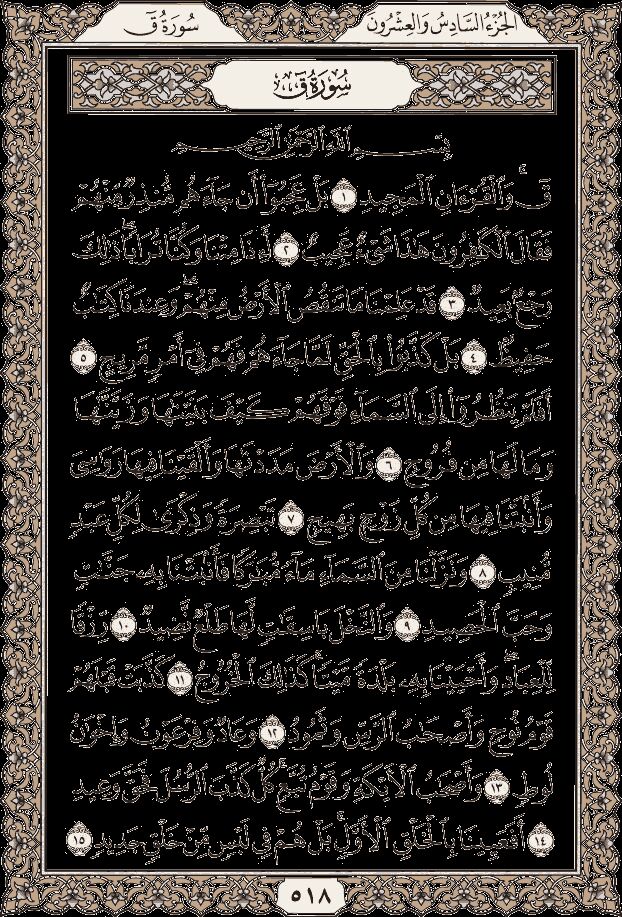 الجزء السادس والعشرون
سورة ق
سُورَةُ قٓ
بِسْمِ ٱللَّهِ ٱلرَّحْمَٰنِ ٱلرَّحِيمِ
قٓۚ وَٱلْقُرْءَانِ ٱلْمَجِيدِ ١ بَلْ عَجِبُوٓا۟ أَن جَآءَهُم مُّنذِرٌ مِّنْهُمْ
فَقَالَ ٱلْكَٰفِرُونَ هَٰذَا شَىْءٌ عَجِيبٌ ٢ أَءِذَا مِتْنَا وَكُنَّا تُرَابًاۖ ذَٰلِكَ
رَجْعٌۢ بَعِيدٌ ٣ قَدْ عَلِمْنَا مَا تَنقُصُ ٱلْأَرْضُ مِنْهُمْۖ وَعِندَنَا كِتَٰبٌ
حَفِيظٌۢ ٤ بَلْ كَذَّبُوا۟ بِٱلْحَقِّ لَمَّا جَآءَهُمْ فَهُمْ فِىٓ أَمْرٍ مَّرِيجٍ ٥
أَفَلَمْ يَنظُرُوٓا۟ إِلَى ٱلسَّمَآءِ فَوْقَهُمْ كَيْفَ بَنَيْنَٰهَا وَزَيَّنَّٰهَا
وَمَا لَهَا مِن فُرُوجٍ ٦ وَٱلْأَرْضَ مَدَدْنَٰهَا وَأَلْقَيْنَا فِيهَا رَوَٰسِىَ
وَأَنۢبَتْنَا فِيهَا مِن كُلِّ زَوْجٍۭ بَهِيجٍ ٧ تَبْصِرَةً وَذِكْرَىٰ لِكُلِّ عَبْدٍ
مُّنِيبٍ ٨ وَنَزَّلْنَا مِنَ ٱلسَّمَآءِ مَآءً مُّبَٰرَكًا فَأَنۢبَتْنَا بِهِۦ جَنَّٰتٍ
وَحَبَّ ٱلْحَصِيدِ ٩ وَٱلنَّخْلَ بَاسِقَٰتٍ لَّهَا طَلْعٌ نَّضِيدٌ ١٠ رِّزْقًا
لِّلْعِبَادِۖ وَأَحْيَيْنَا بِهِۦ بَلْدَةً مَّيْتًاۚ كَذَٰلِكَ ٱلْخُرُوجُ ١١ كَذَّبَتْ قَبْلَهُمْ
قَوْمُ نُوحٍ وَأَصْحَٰبُ ٱلرَّسِّ وَثَمُودُ ١٢ وَعَادٌ وَفِرْعَوْنُ وَإِخْوَٰنُ
لُوطٍ ١٣ وَأَصْحَٰبُ ٱلْأَيْكَةِ وَقَوْمُ تُبَّعٍۚ كُلٌّ كَذَّبَ ٱلرُّسُلَ فَحَقَّ وَعِيدِ
١٤ أَفَعَيِينَا بِٱلْخَلْقِ ٱلْأَوَّلِۚ بَلْ هُمْ فِى لَبْسٍ مِّنْ خَلْقٍ جَدِيدٍ ١٥
٥١٨